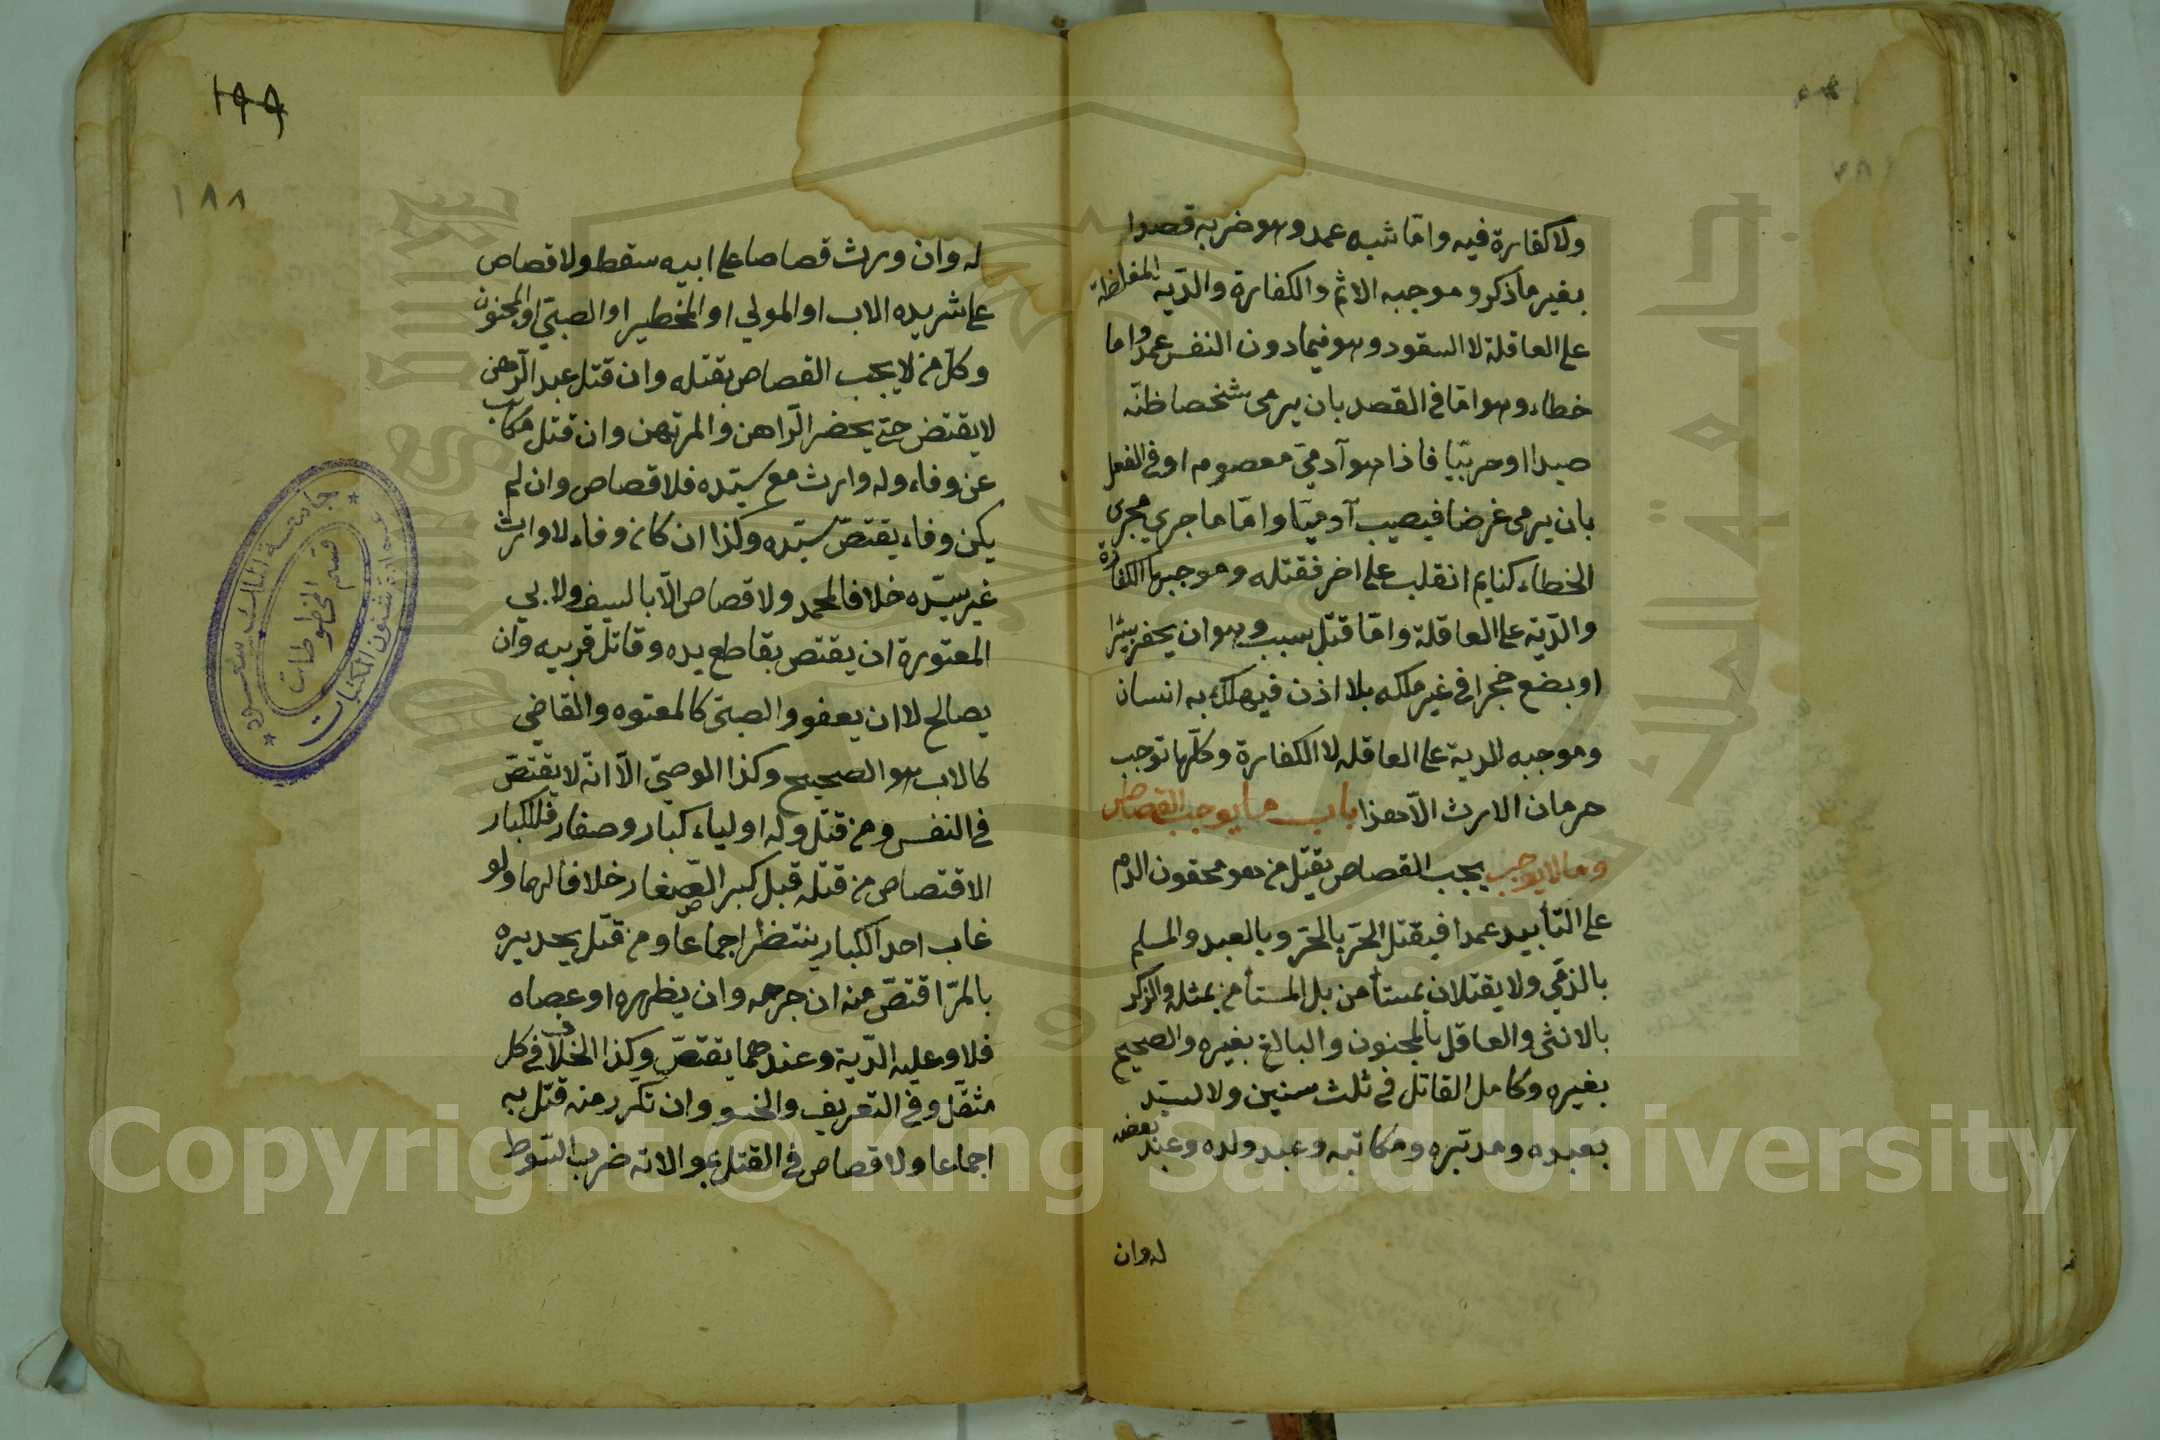 ولا كفارة فيه واما شبه عمد وهو ضربه قصدا
بغير ما ذكر وموجبه الاثم والكفارة والدية المغلظة
على العاقلة لا القود وهو فيما دون النفس عمد واما
خطاء وهو اما في القصد بان يرمي شخصا ظنه
صيدا او حربيا فاذا هو آدمي معصوم او في الفعل
بان يرمي غرضا فيصيب آدميا واما ما جرى مجرى
الخطاء كنايم انقلب على اخر فقتله وموجبها الكفارة
والدية على العاقلة واما قتل بسبب وهو ان يحفر بيرا
او يضع حجرا في غير ملكه بلا اذن فيهلك به انسان
وموجبه الدية على العاقله لا الكفارة وكلها توجب
حرمان الارث الا هذا باب ما يوجب القصاص
وما لا يوجب يجب القصاص بقتل من هو محقون الدم
على التأبيد عمدا فيقتل الحر بالحر وبالعبد والمسلم
بالذمي ولا يقتلان بمستأمن بل المستأمن بمثله والذكر
بالانثى والعاقل بالمجنون والبالغ بغيره والصحيح
بغيره وكامل القاتل في ثلث سنين ولا لسيد
بعبده ومدبره ومكاتبه وعبد ولده وعبد بعضه
له وان
١٩٩
١٨٨
له وان ورث قصاصا على ابيه سقط ولا قصاص
على شريده الاب او المولي او المخطير او الصبي او المجنون
وكل من لا يجب القصاص بقتله وان قتل عبد الرهن
لا يقتض حتى يحضر الراهن والمرتهن وان قتل مكاتب
عن وفاء وله وارث مع سيده فلا قصاص وان لم
يكن وفاء يقتص سيده وكذا ان كان وفاء لا وارث
غير سيده خلافا لمحمد ولا قصاص الا بالسيف ولابي
المعتورة ان يقتص بقاطع يده وقاتل قريبه وان
يصالح لا ان يعفو والصبي كالمعتوه والقاضي
كالاب هو الصحيح وكذا الوصي الا انه لا يقتص
في النفس ومن قتل وله اولياء كبار وصغار فللكبار
الاقتصاص من قتله قبل كبر الصغار خلافا لهما ولو
غاب احد الكبار ينتظر اجماعا ومن قتل بحديره
بالمر اقتص منه ان جرحه وان بظهره او عصاه
فلا وعليه الدية وعندهما يقتص وكذا الخلاف في كل
مثقل وفي التعريف والخنو وان تكرر منه قتل به
اجماعا ولا قصاص في القتل بموالاته ضرب السوط
جامعة الملك سعود
عمادة شئون المكتبات
قسم المخطوطات
Copyright © King Saud University